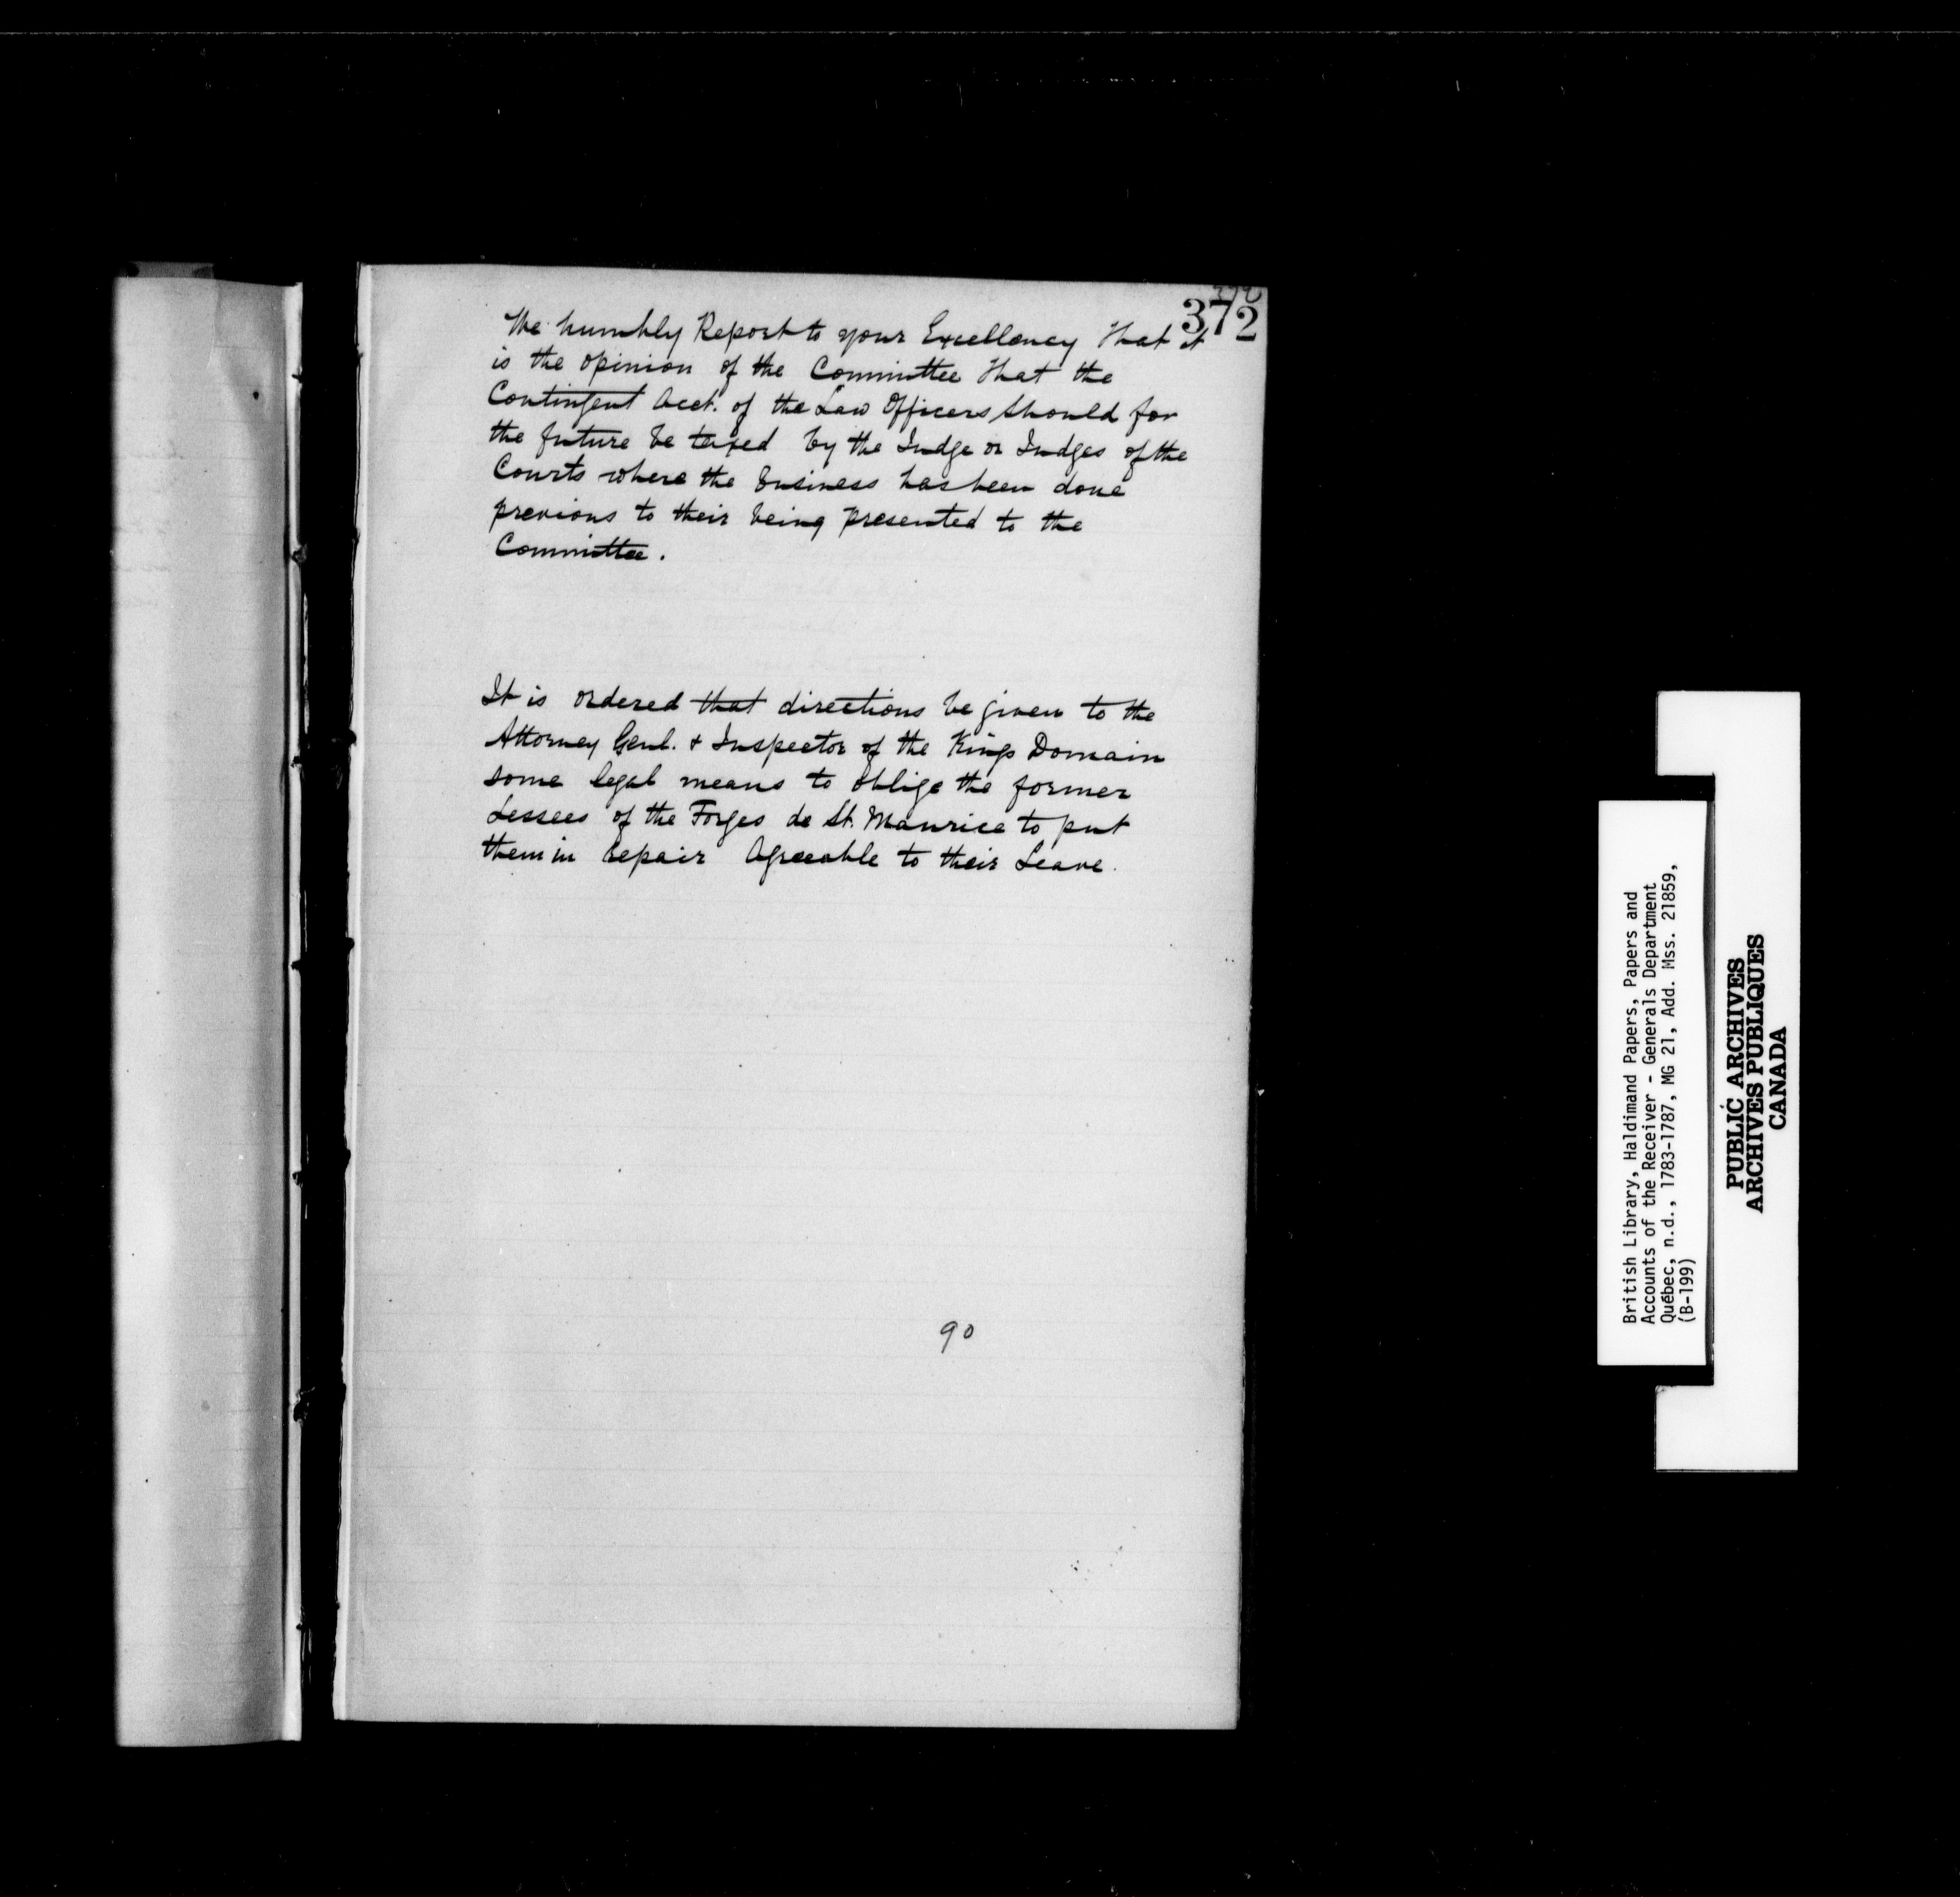 372
We humbly Report to your Excellency that it
is the opinion of the Committee that the
Contingent Acct. of the Law Officers should for
the future be taxed by the Judge or Judges of the
Courts where the business has been done
previous to their being presented to the
Committee.
It is ordered that directions be given to the
Attorney Genl. & Inspector of the Kings Domain
some legal means to oblige the former
Lessees of the Forges de St. Maurice to put
them in repair Agreeable to their Leave.
90
British Library, Haldimand Papers, Papers and
Accounts of the Receiver - Generals Department
Québec, n.d., 1783-1787, MG 21, Add. Mss. 21859,
(B-199)
PUBLIC ARCHIVES
ARCHIVES PUBLIQUES
CANADA